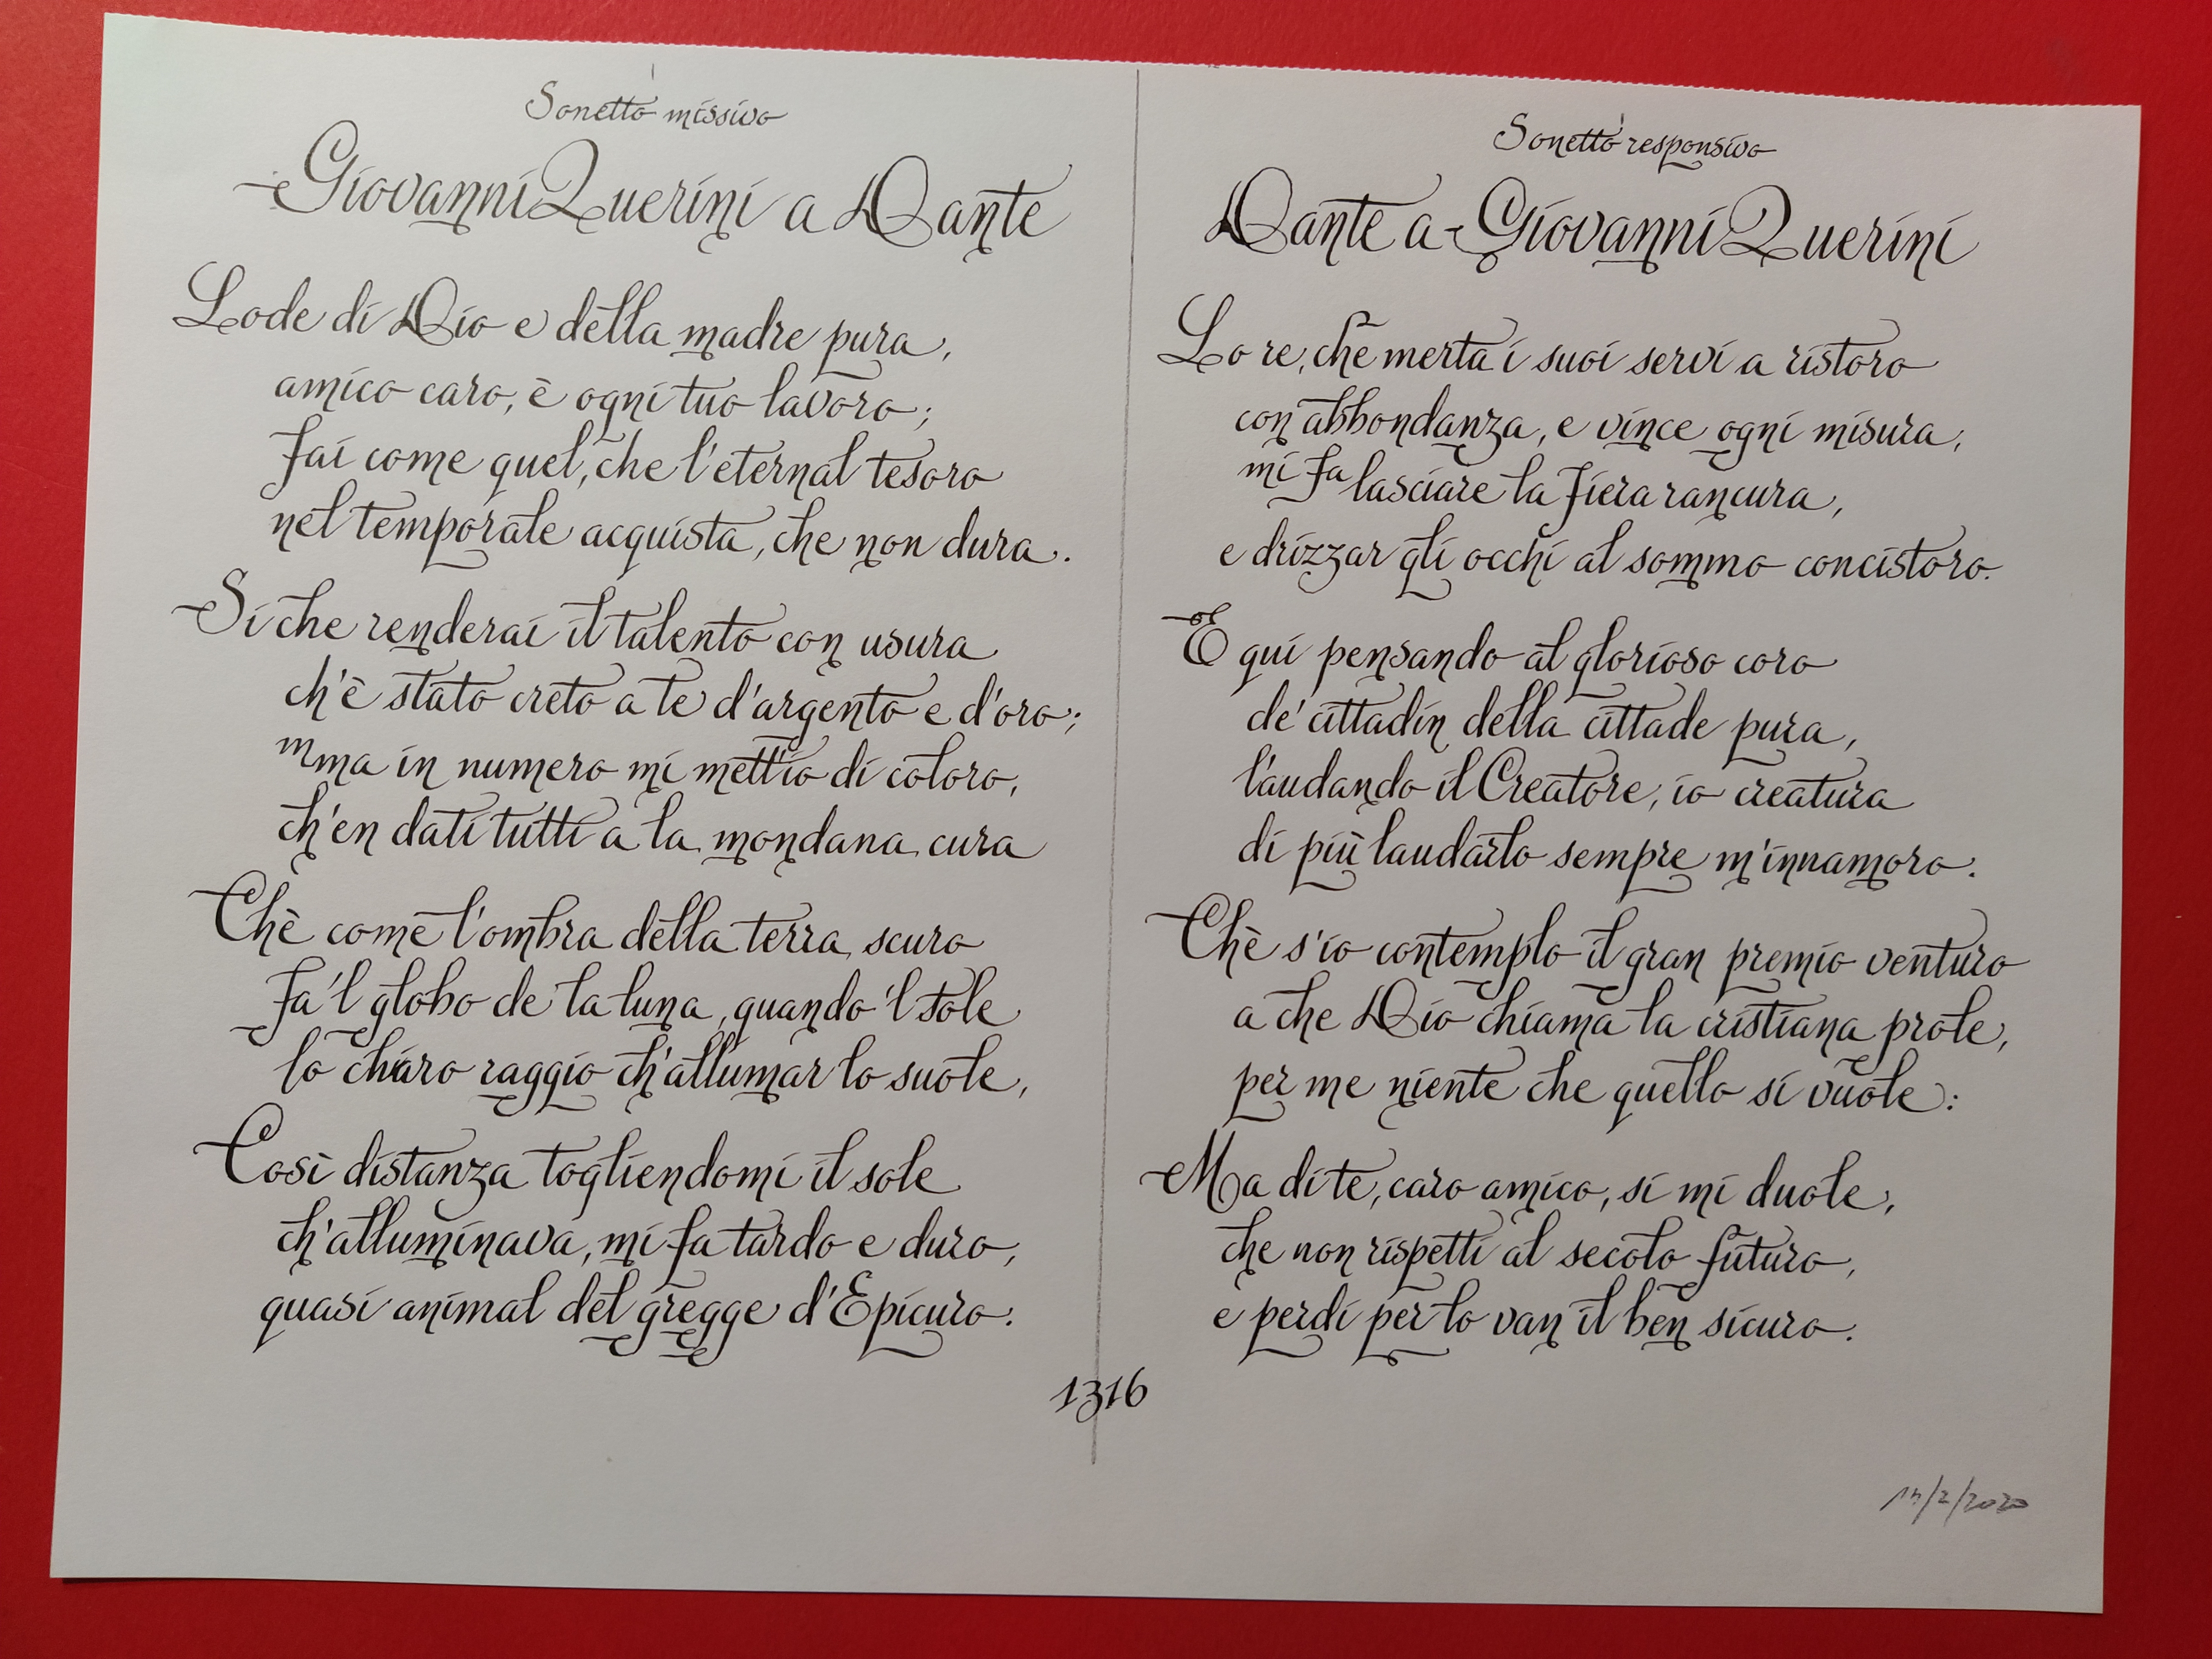 Sonetto missivo
Giovanni Querini a Dante
Lode di Dio e della madre pura,
amico caro, è ogni tuo lavoro;
fai come quel, che l'eternal tesoro
nel temporale acquista, che non dura.
Si che renderai il talento con usura
ch'è stato creto a te d'argento e d'oro;
mma in numero mi mett'io di coloro,
ch'en dati tutti a la mondana cura
Chè come l'ombra della terra scuro
fa 'l globo de la luna, quando 'l tole
lo chiaro raggio ch'allumar lo suole,
Così distanza togliendomi il sole
ch'alluminava, mi fa tardo e duro,
quasi animal del gregge d'Epicuro.
Sonetto responsivo
Dante a Giovanni Querini
Lo re, che merta i suoi servi a ristoro
con abbondanza, e vince ogni misura,
mi fa lasciare la fiera rancura,
e drizzar gli occhi al sommo concistoro.
E qui pensando al glorioso coro
de' cittadin della cittade pura,
laudando il Creatore, io creatura
di più laudarlo sempre m'innamoro.
Chè s'io contemplo il gran premio venturo
a che Dio chiama la cristiana prole,
per me niente che quello si vuole:
Ma di te, caro amico, si mi duole,
che non rispetti al secolo futuro,
e perdi per lo van il ben sicuro.
1316